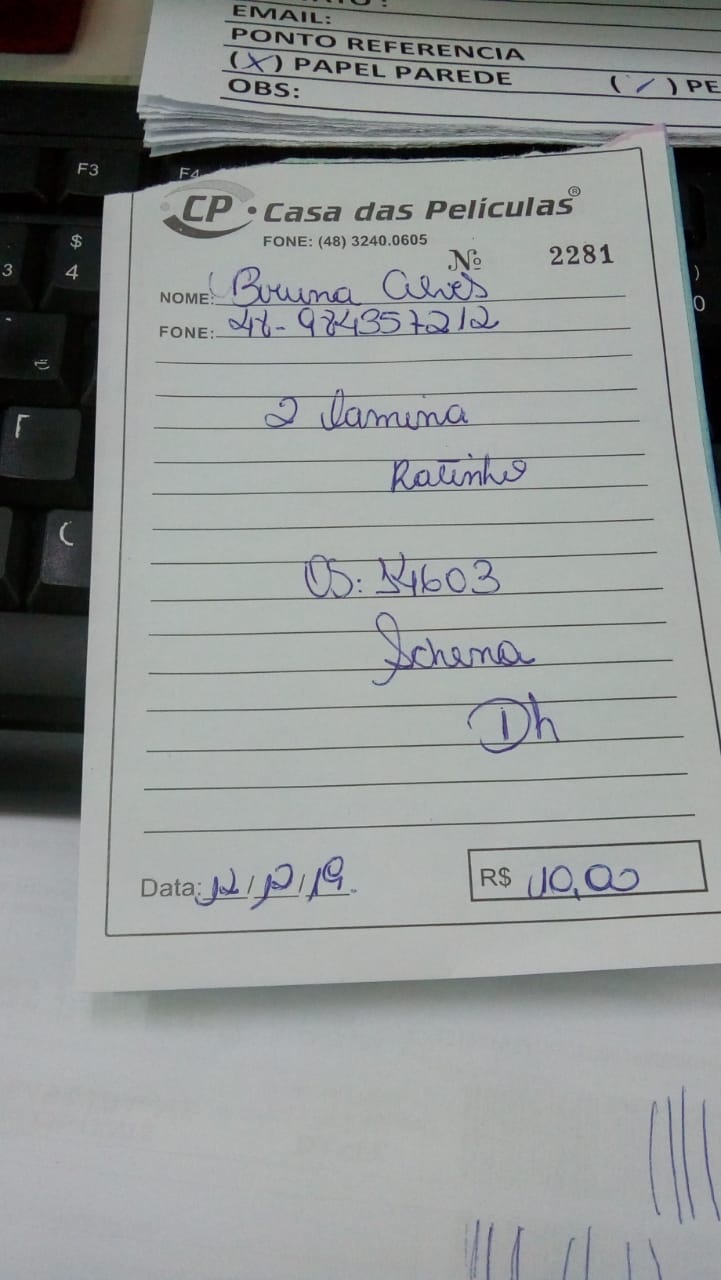 EMAIL:
PONTO REFERENCIA
(X) PAPEL PAREDE (/) PE
OBS:
F3
F4
$
4
3
)
0
CP • Casa das Películas®
FONE: (48) 3240.0605
Nº 2281
NOME: Bruna Alves
FONE: 48-984357212
2 lamina
Ratinho
OS: 54603
Schena
Dh
Data: 12/12/19.
R$ 10,00